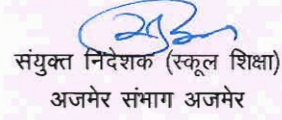 संयुक्त निदेशक (स्कूल शिक्षा)
अजमेर संभाग अजमेर